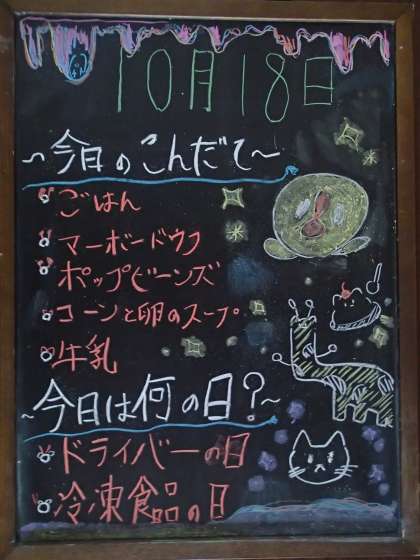 10月18日
～今日のこんだて～
ごはん
マーボードウフ
ポップビーンズ
コーンと卵のスープ
牛乳
～今日は何の日?～
ドライバーの日
冷凍食品の日